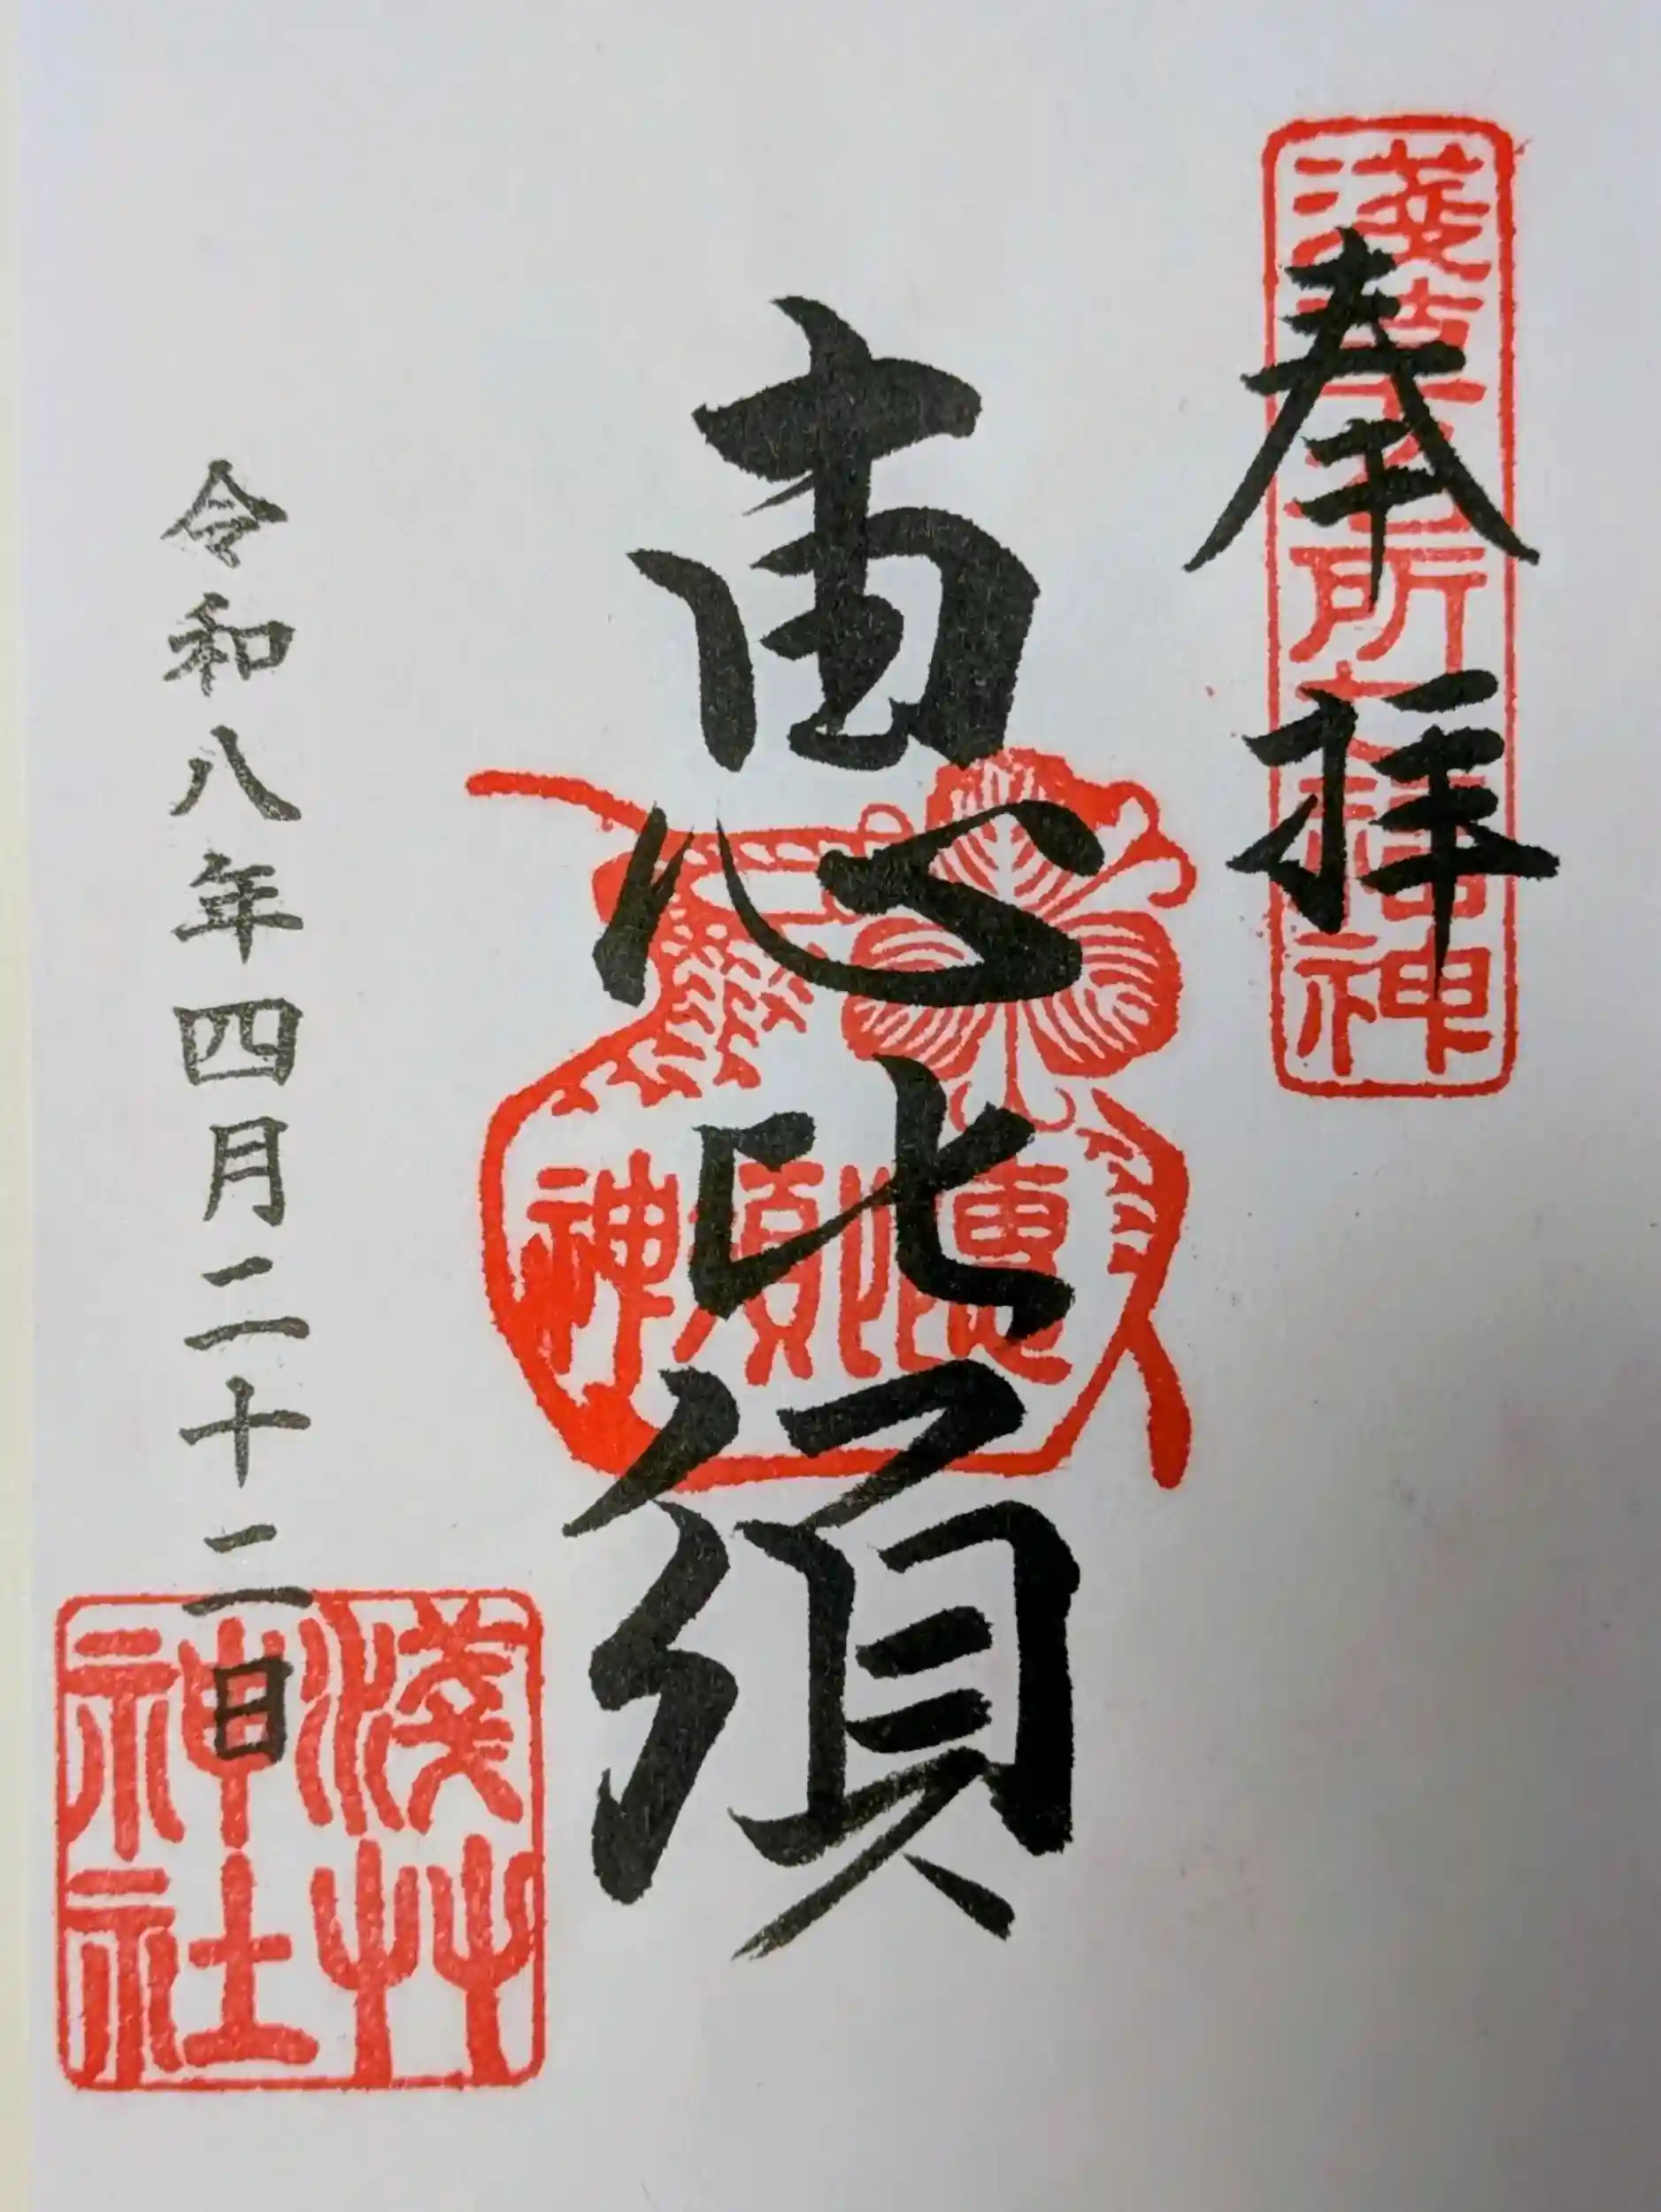 奉拝
淺草名所七福神
恵比須
恵比須神
令和八年四月二十二日
淺草神社